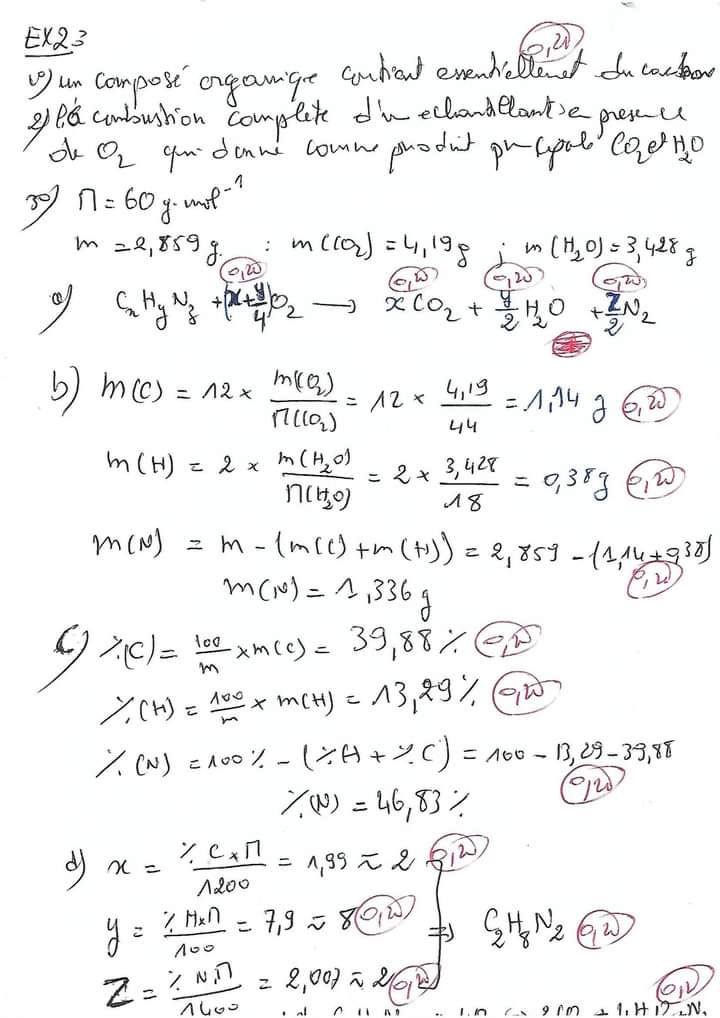 EX2:3
0,25
1°) un composé organique contient essentiellement du carbone
2°) la combustion complete d'un echantillant en presence
de O2 qui donne comme produit principale CO2 et H2O
3°) M = 60 g·mol⁻¹
m = 2,859 g. : m(CO2) = 4,19 g ; m(H2O) = 3,428 g
0,25 0,25 0,25 0,25
a) CxHyNz + (x+y/4)O2 → xCO2 + y/2 H2O + z/2 N2
b) m(C) = 12 × m(CO2)/M(CO2) = 12 × 4,19/44 = 1,14 g 0,25
m(H) = 2 × m(H2O)/M(H2O) = 2 × 3,428/18 = 0,38 g 0,25
m(N) = m - (m(C) + m(H)) = 2,859 - (1,14 + 0,38)
m(N) = 1,336 g 0,25
c) %(C) = 100/m × m(C) = 39,88 % 0,25
%(H) = 100/m × m(H) = 13,29 % 0,25
%(N) = 100 % - (%H + %C) = 100 - 13,29 - 39,88
%(N) = 46,83 % 0,25
d) x = %C×M/1200 = 1,99 ≈ 2 0,25
y = %H×M/100 = 7,9 ≈ 8 0,25 ⇒ C2H8N2 0,25
z = %N.M/1400 = 2,007 ≈ 2 0,25 0,25